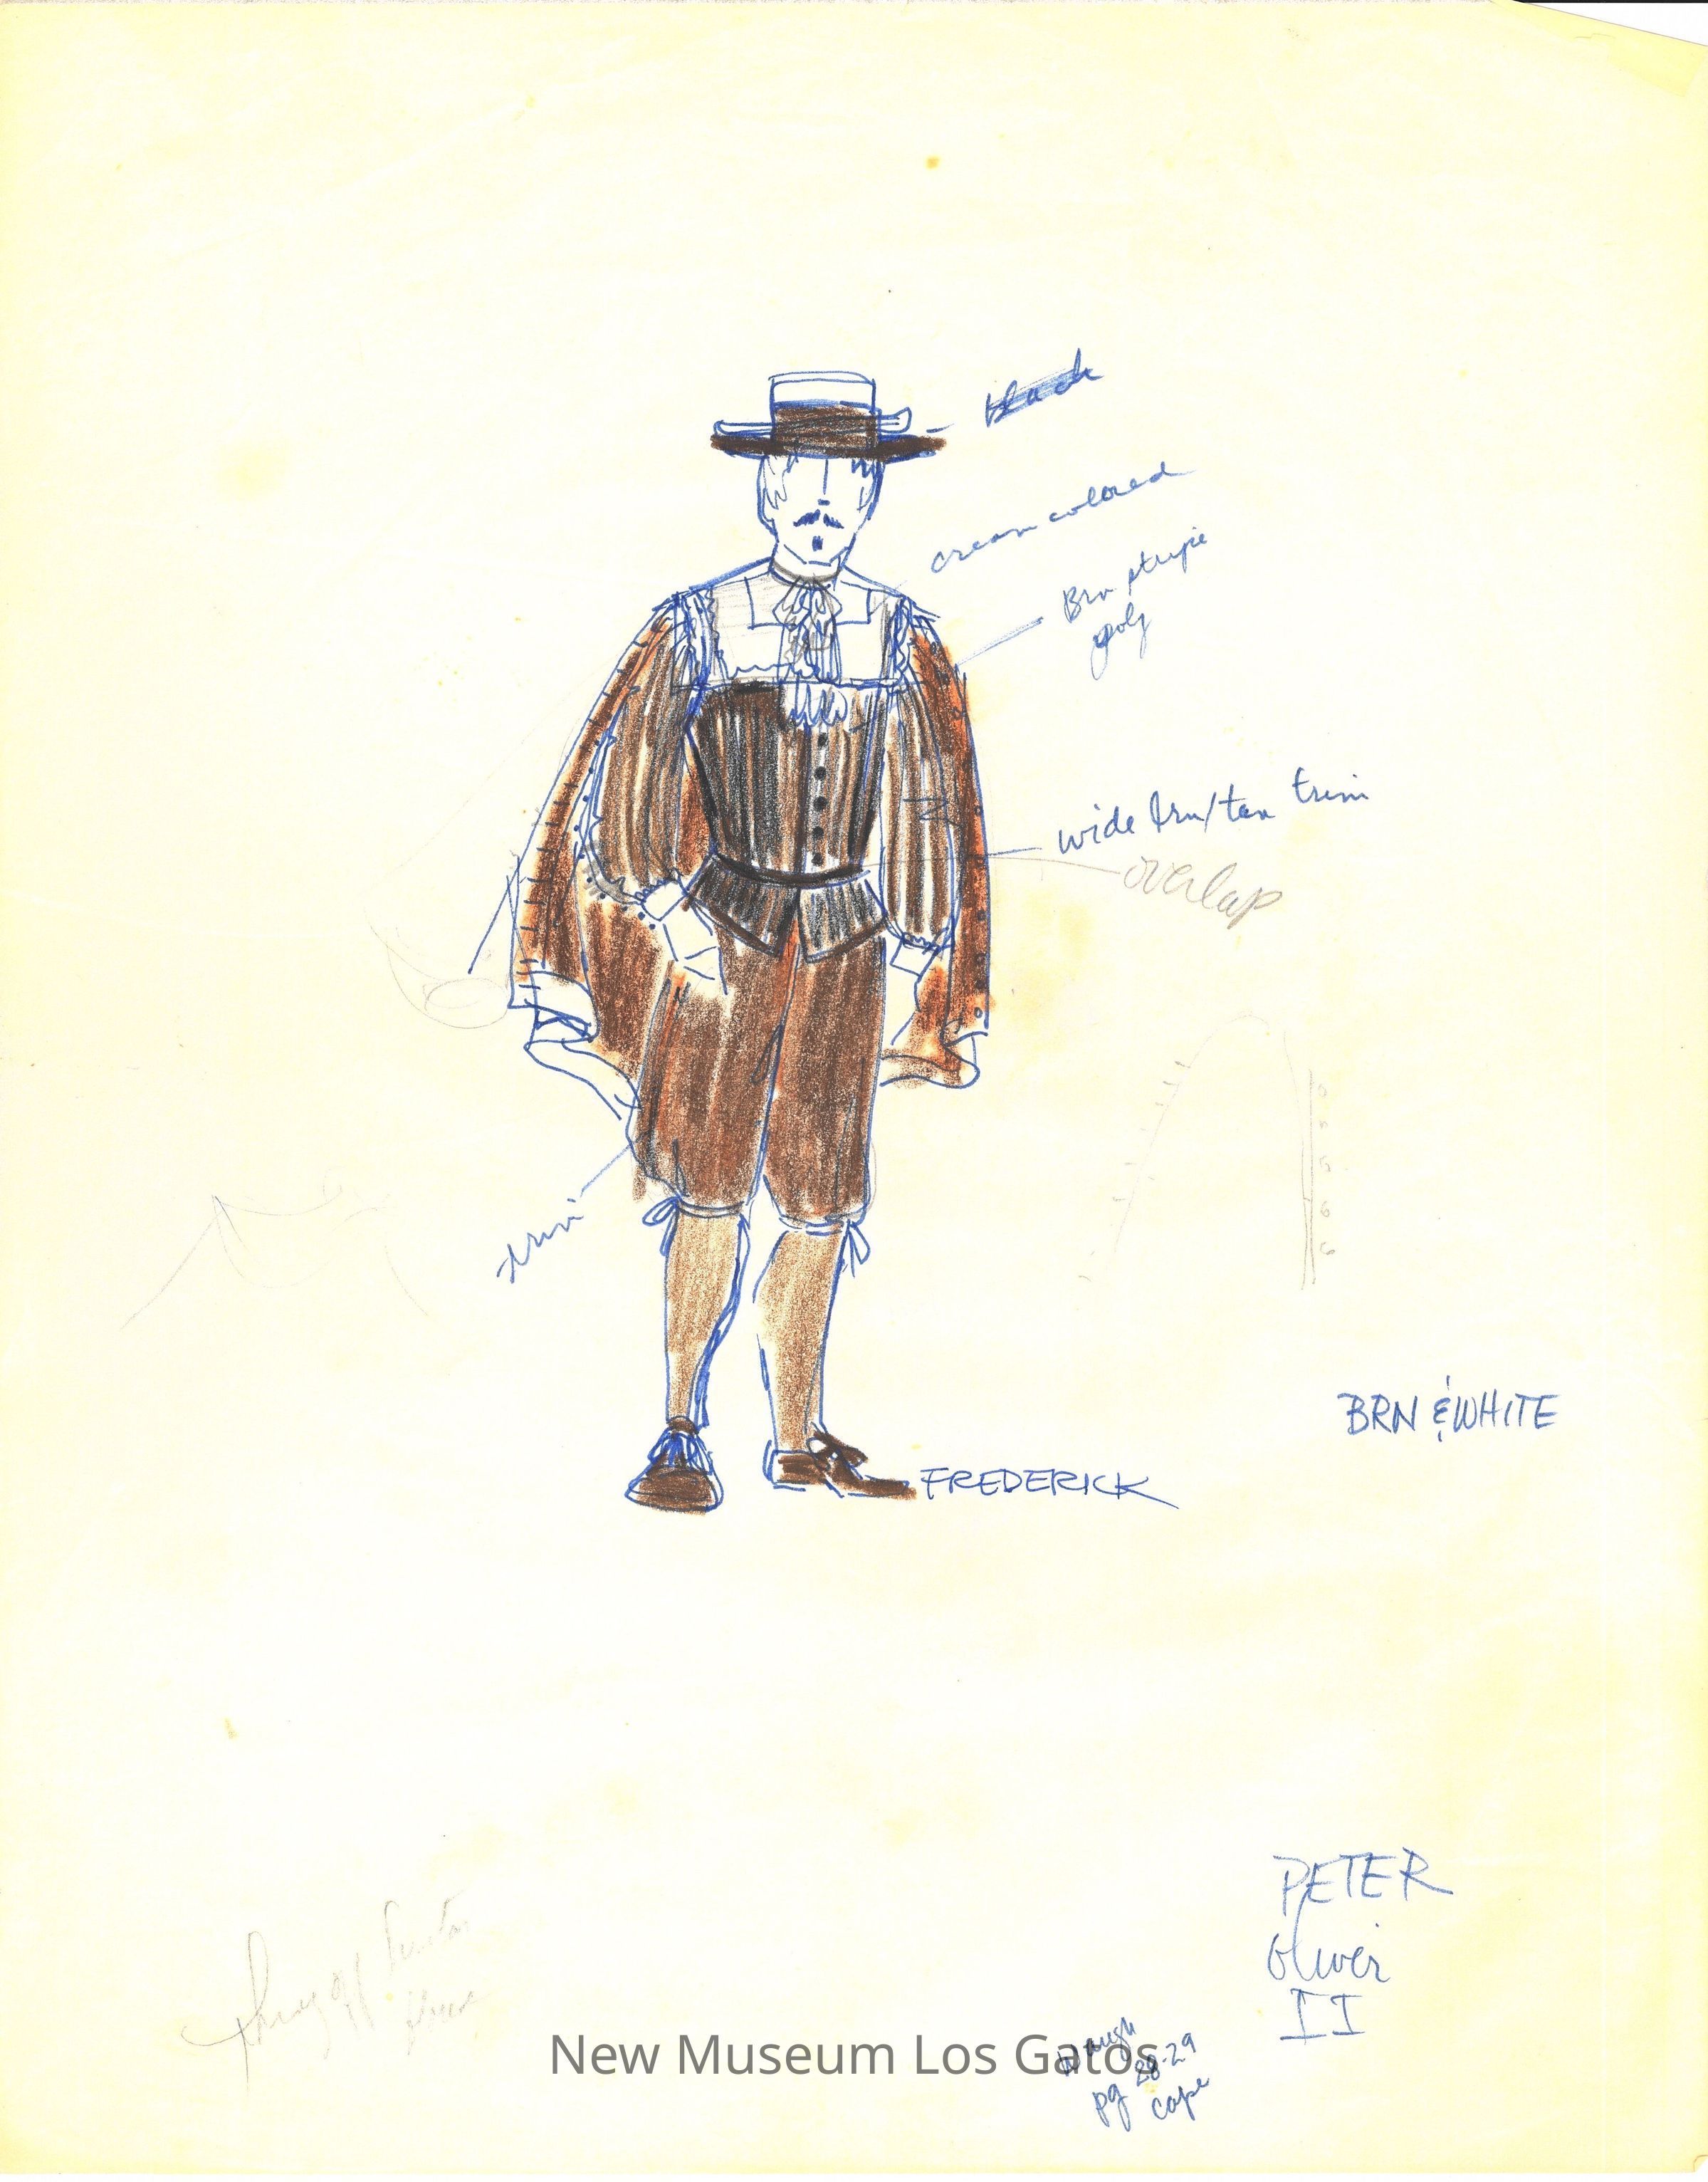 black
cream colored
Brn stripe
poly
wide brn/tan trim
overlap
trim
BRN & WHITE
FREDERICK
PETER
Oliver
II
Waugh
pg 28-29
cape
New Museum Los Gatos